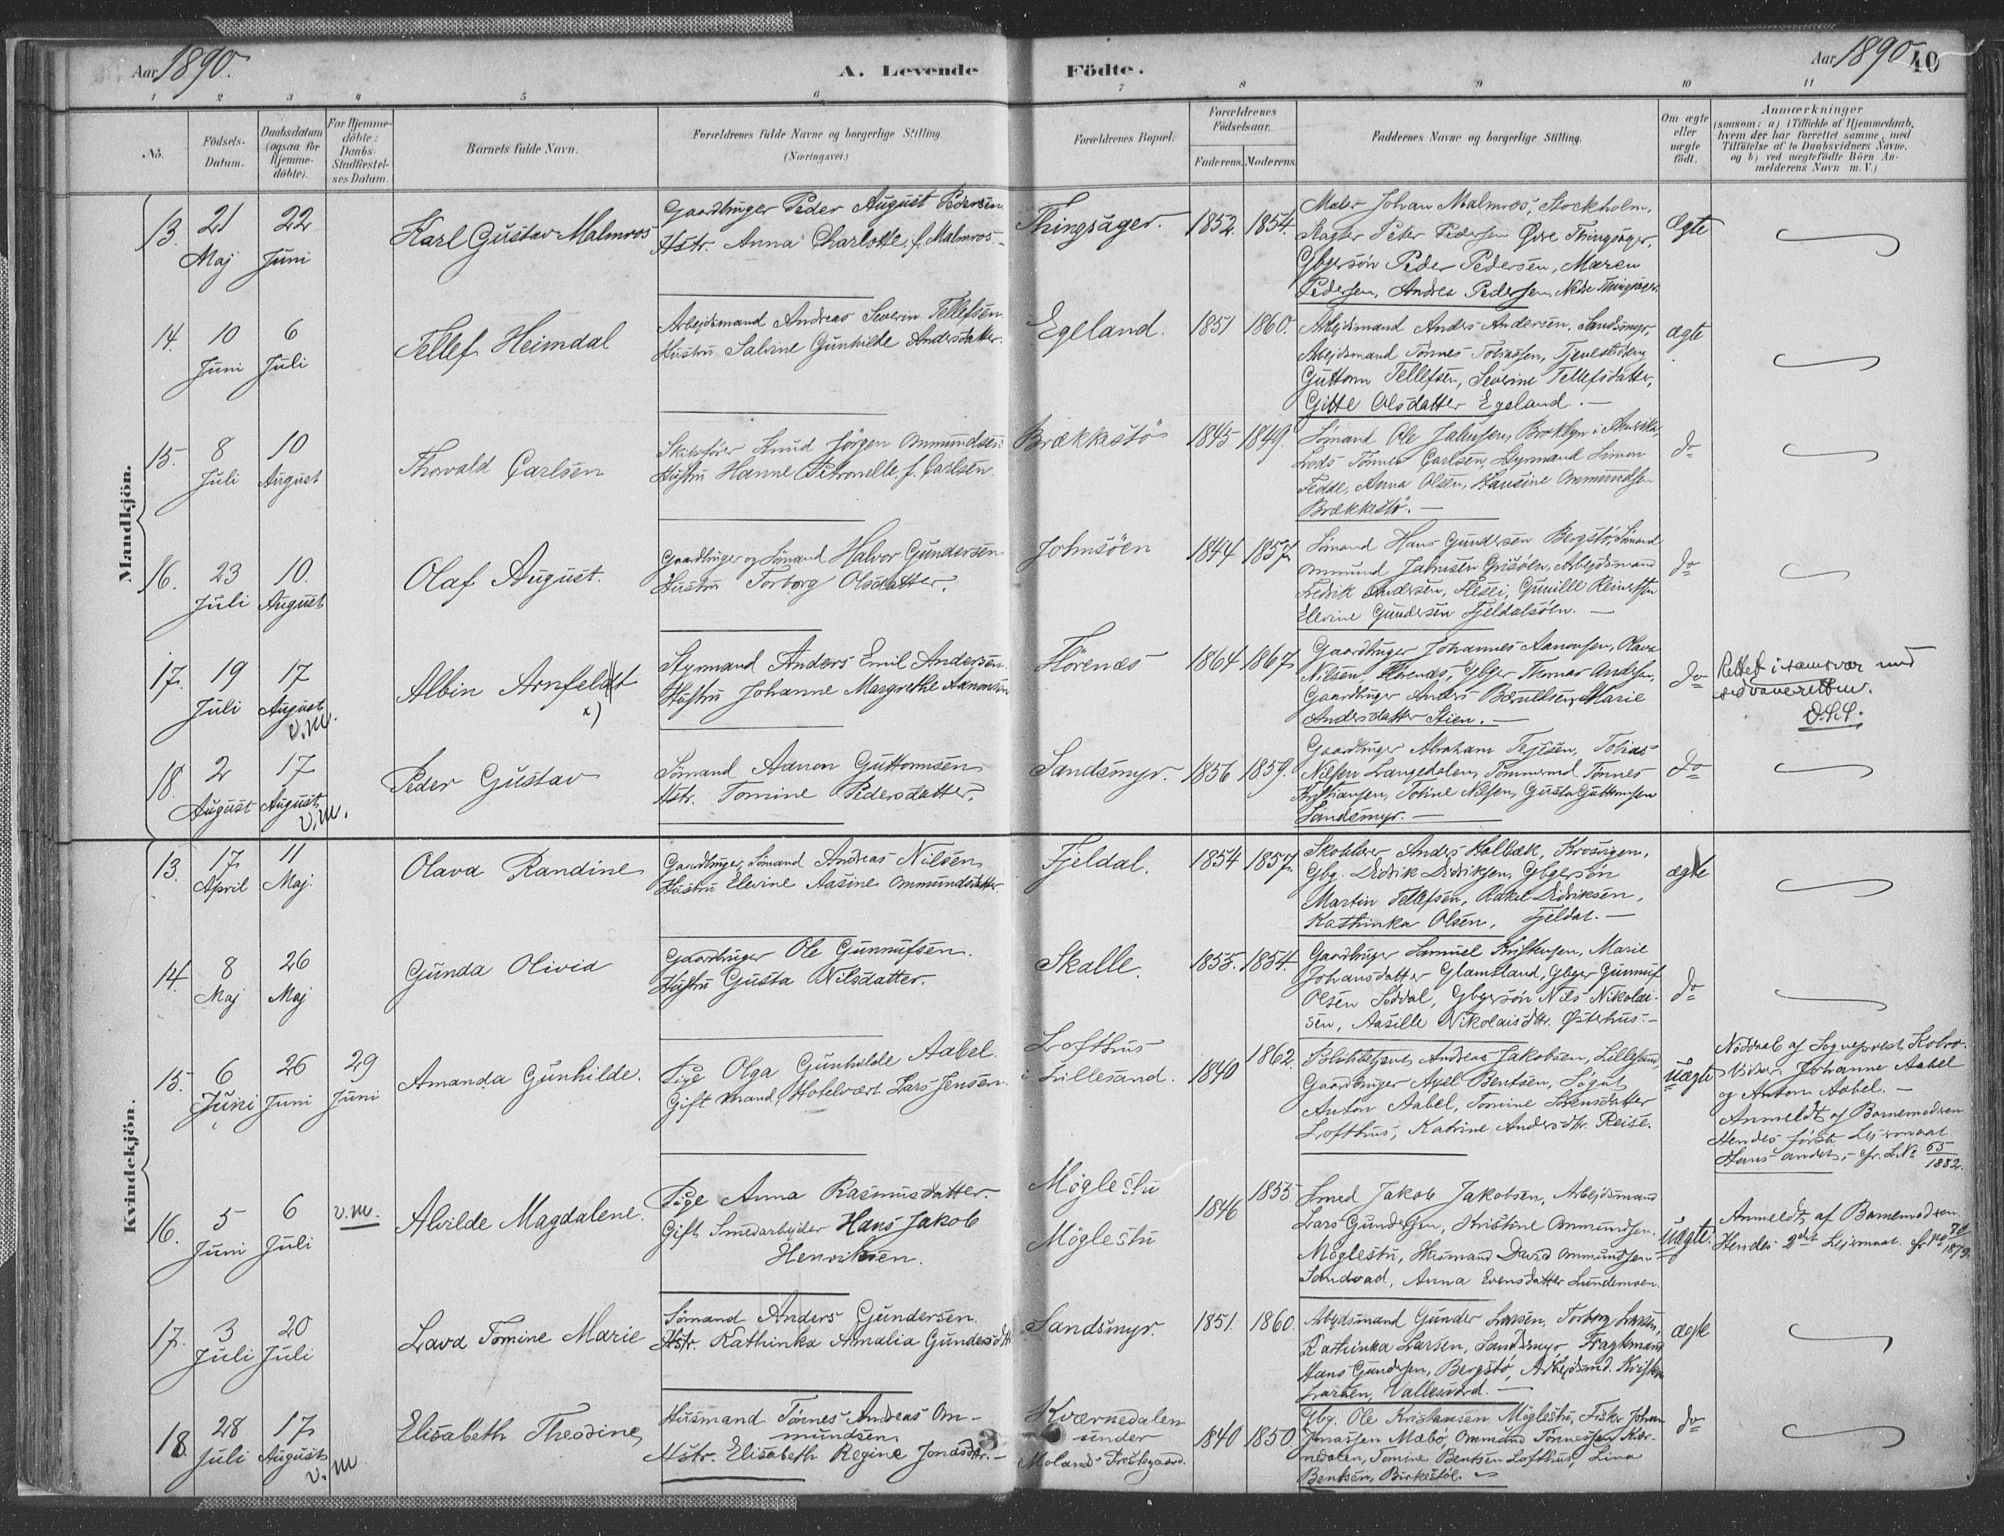 Aar 1890.
A. Levende Fødte.
Aar 1890 40
1 2 3 4 5 6 7 8 9 10 11
No.
Fødsels-Datum.
Daabsdatum (ogsaa for Hjemme-døbte).
For Hjemme-døbte: Daabs-Stadfæstel-ses Datum.
Barnets fulde Navn.
Forældrenes fulde Navne og borgerlige Stilling. (Næringsvei.)
Forældrenes Bopæl.
Forældrenes Fødselsaar.
Faderens. Moderens.
Faddernes Navne og borgerlige Stilling.
Om ægte eller uægte født.
Anmærkninger
(saasom: a) i Tilfælde af Hjemmedaab, hvem der har forrettet samme, med Tilføielse af to Daabsvidners Navne, og b) ved uægtefødte Børn An-melderens Navn m. V.)
Mandkjøn.
13. 21 Maj 22 Juni
Karl Gustav Malmros
Gaardbruger Peder August Pedersen
Hstr. Anna Charlotte, f. Malmros.
Thingsager. 1852. 1854.
Maler Johan Malmros, Stockholm,
Peter Pedersen Øvre Thingsager,
Gbgersøn Peder Pedersen, Maren
Pedersen, Andrea Pedersen, Nedre Thingsager.
Ægte
14. 10 Juni 6 Juli
Tellef Heimdal
Arbejdsmand Andreas Severin Tellefsen
Hustru Salvine Gunhilde Andersdatter.
Egeland. 1851 1860.
Arbejdsmand Anders Andersen, Sandsmyr,
Arbejdsmand Tønnes Tobiassen,
Guttorm Tellefsen, Severine Tellefsdatter,
Gitte Olsdatter Egeland.
ægte
15. 8 Juli 10 August
Thorvald Carlsen
Skibsfører Knud Jørgen Ommundsen
Hustru Hanne Petronelle, f. Carlsen.
Brækkestø 1845 1849.
Sømand Ole Jahnsen, Broklyn i Amerika,
Lods Tønnes Carlsen, Styrmand Simon
Fedde, Anna Olsen, Hansine Ommundsen
Brækkestø.
do
16. 23 Juli 10. August
Olaf August.
Gaardbruger og Sømand Halvor Gundersen
Hustru Torborg Olsdatter.
Johnsøen 1844 1857.
Sømand Hans Gundersen Bergstø, Sømand
Ommund Jahnsen Grisøen, Arbejdsmand
Fredrik Andersen, Gunille Reinertsen
Elevine Gundersen Fjeldalsøen.
do
17. 19 Juli 17 August v.m.
Albin Arnfeldt x)
Styrmand Anders Emil Andersen
Hustru Johanne Margrethe Aanonsen
Flørenæs 1864 1867
Gaardbruger Johannes Aanonsen, Olava
Nilsen, Flørenæs, Gbger Thomas Andersen,
Gaardbruger Anders Berntsen, Marie
Andersdatter Stien.
do
Rettet i samsvar med
18. 2 August 17 August v.m.
Peder Gustav
Sømand Aanon Guttormsen
Hstr. Tomine Pedersdatter.
Sandsmyr. 1856 1859.
Gaardbruger Abraham Terjesen, Tobias
Nilsen Langedalen, Tømmermd Tønnes
Kristiansen, Tobine Nilsen, Gusta Guttormsen
Sandsmyr.
do
Kvindekjøn.
13. 17 April 11 Maj.
Olava Randine
Gaardbruger, Sømand Andreas Nilsen
Hustru Elevine Aasine Ommundsdatter.
Fjeldal. 1854 1857.
Skolelærer Anders Holbæk, Krosvigen,
Gbg. Didrik Didriksen, Gbgersøn
Martin Tellefsen, Rakel Didriksen,
Kathinka Olsen, Fjeldal.
ægte
14. 8 Maj 26 Maj
Gunda Olivia
Gaardbruger Ole Gunnufsen.
Hustru Gusta Nilsdatter.
Skalle. 1853. 1854.
Gaardbruger Samuel Kristensen, Marie
Johansdatter Glamsland, Gbger Gunnuf
Olsen Søddal, Gbgersøn Nils Nikolai-
sen, Aasille Nikolaisdtr. Østerhus.
do
15. 6 Juni 26 Juni 29 Juni
Amanda Gunhilde.
Pige Olga Gunhilde Aabel.
Gift Mand, Hotelvert Lars Jensen.
Lofthus
i Lillesand. 1840 1862.
Politibetjent Andreas Jakobsen, Lillesand,
Gaardbruger Axel Bentsen, Søgut
Anton Aabel, Tomine Sørensdatter
Lofthus, Katrine Andersdtr. Reise.
Uægte
Nøddaab af Sogneprest Kobro.
Vidner: Johanne Aabel
og Anton Aabel.
Anmeldt af Barnemoderen
Hendes første Lejermaal.
Hans andet, cfr. L.N. 65/1882.
16. 5 Juni 6 Juli v.m.
Alvilde Magdalene.
Pige Anna Rasmusdatter.
Gift Smedarbejder Hans Jakob
Henriksen.
Møglestu
Møglestu 1846 1853
Smed Jakob Jakobsen, Arbejdsmand
Lars Gundersen, Kristine Ommundsen.
Møglestu, Husmand David Ommundsen
Sandvad, Anna Evensdatter Lundemoen.
Uægte.
Anmeldt af Barnemoderen.
Hendes 2det Lejermaal.
17. 3 Juli 20 Juli
Lava Tomine Marie
Sømand Anders Gundersen
Hstr. Kathinka Amalia Gundersdtr
Sandsmyr. 1851. 1860.
Arbejdsmand Gunder Larsen, Torborg Larsen,
Kathinka Larsen, Sandsmyr, Fragtmand
Hans Gundersen, Bergstø, Arbejdsmd. Kristen
Larsen, Vallesverd.
ægte
18. 28 Juli 17 August v.m
Elisabeth Theodine
Husmand Tønnes Andreas Om-
mundsen
Hstr. Elisabeth Regine Jonasdtr.
Kværnedalen
under
Moland Prestegaard. 1840 1850
Gbg. Ole Kristansen Møglestu, Fisker Johan
Jonassen Mæbø, Ommund Tønnessen Kvær-
nedalen, Tomine Bentsen Lofthus, Lina
Bentsen, Birkestøl.
do